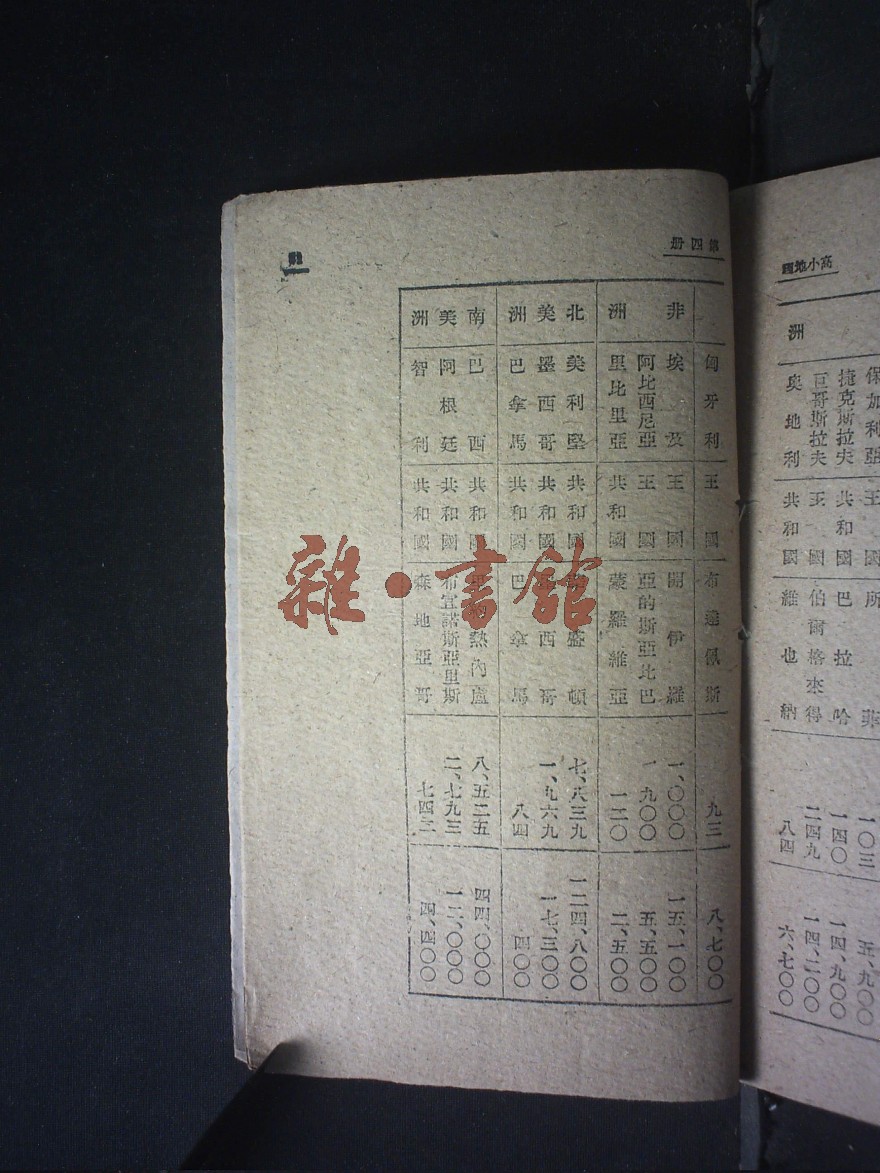 高小地
保加利亞 王國 所菲 一〇三 五、九〇〇
捷克斯拉夫 共和國 巴拉哈 一四〇 一四、九〇〇
巨哥斯拉夫 王國 伯爾格來得 二四九 一四、二〇〇
洲 奥地利 共和國 維也納 八四 六、七〇〇
第四册
匈牙利 王國 布達佩斯 九三 八、七〇〇
非 埃及 王國 開伊羅 一、〇〇〇 一五、一〇〇
阿比西尼亞 王國 亞的斯亞比巴 一九〇〇 五、五〇〇
洲 里比里亞 共和國 蒙羅維亞 一二〇 二、五〇〇
北 美利堅 共和國 盛頓 七、八三九 一二四、八〇〇
美 墨西哥 共和國 西哥 一、九六九 一七、三〇〇
洲 巴拿馬 共和國 巴拿馬 八四 四〇〇
南 巴西 共和國 熱內盧 八、五二五 四四、〇〇〇
美 阿根廷 共和國 布宜諾斯亞里斯 二、七九三 一二、〇〇〇
洲 智利 共和國 森地亞哥 七四二 四、四〇〇
雜·書館